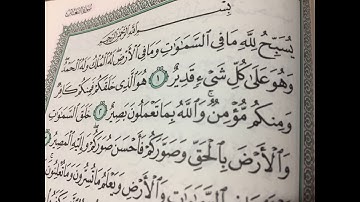 بِسْمِ اللَّهِ الرَّحْمَٰنِ الرَّحِيمِ
يُسَبِّحُ لِلَّهِ مَا فِي السَّمَٰوَٰتِ وَمَا فِي الْأَرْضِ لَهُ الْمُلْكُ وَلَهُ الْحَمْدُ
وَهُوَ عَلَىٰ كُلِّ شَيْءٍ قَدِيرٌ ١ هُوَ الَّذِي خَلَقَكُمْ فَمِنكُمْ كَافِرٌ
وَمِنكُم مُّؤْمِنٌ وَاللَّهُ بِمَا تَعْمَلُونَ بَصِيرٌ ٢ خَلَقَ السَّمَٰوَٰتِ
وَالْأَرْضَ بِالْحَقِّ وَصَوَّرَكُمْ فَأَحْسَنَ صُوَرَكُمْ وَإِلَيْهِ الْمَصِيرُ
وَالْأَرْضِ وَيَعْلَمُ مَا تُسِرُّونَ وَمَا تُعْلِنُونَ